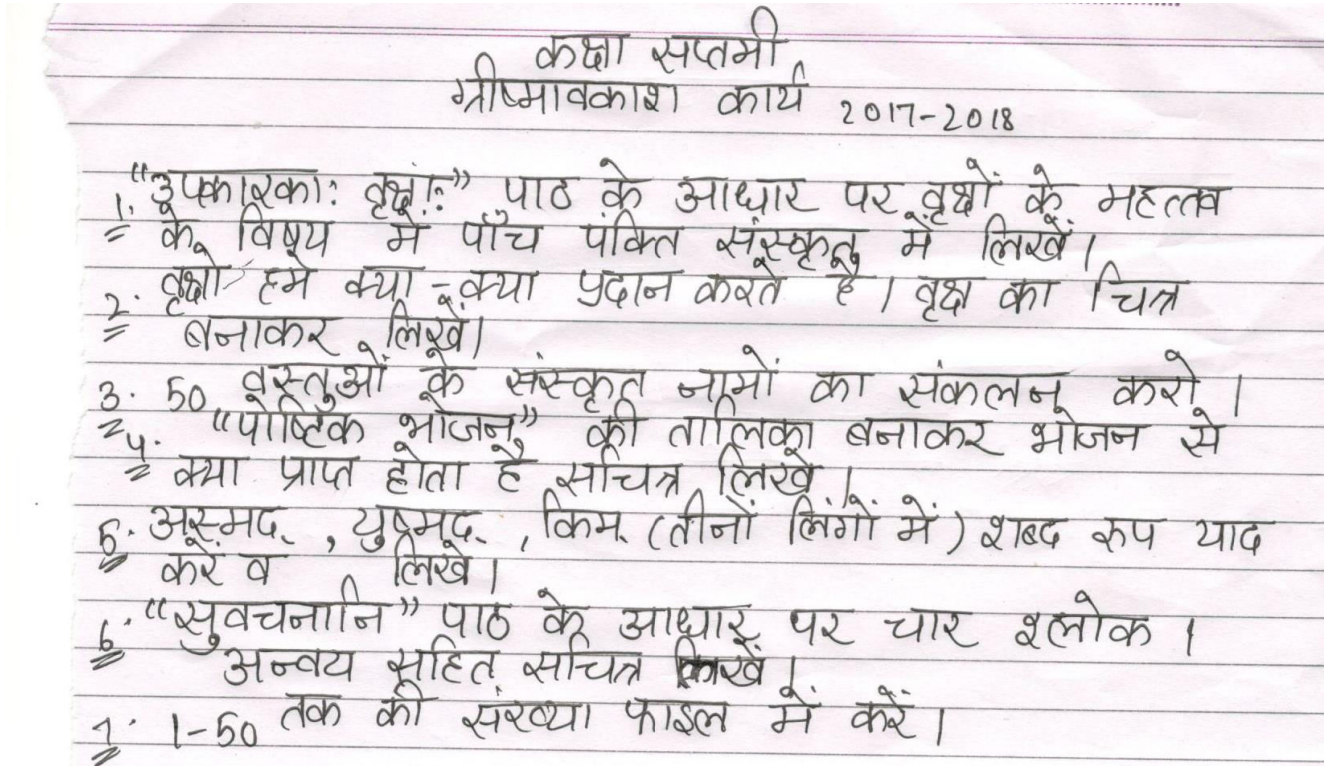 कक्षा सप्तमी
ग्रीष्मावकाश कार्य 2017-2018
1. "उपकारका: वृक्षा:" पाठ के आधार पर वृक्षों के महत्तव
के विषय में पाँच पंक्ति संस्कृत में लिखें।
2. वृक्षो हमे क्या-क्या प्रदान करते है। वृक्ष का चित्र
बनाकर लिखें।
3. 50 वस्तुओं के संस्कृत नामों का संकलन करो।
4. "पौष्टिक भोजन" की तालिका बनाकर भोजन से
क्या प्राप्त होता है सचित्र लिखें।
5. अस्मद्, युष्मद्, किम् (तीनों लिंगों में) शब्द रुप याद
करें व लिखें।
6. "सुवचनानि" पाठ के आधार पर चार श्लोक।
अन्वय सहित सचित्र लिखें।
7. 1-50 तक की संख्या फाइल में करें।